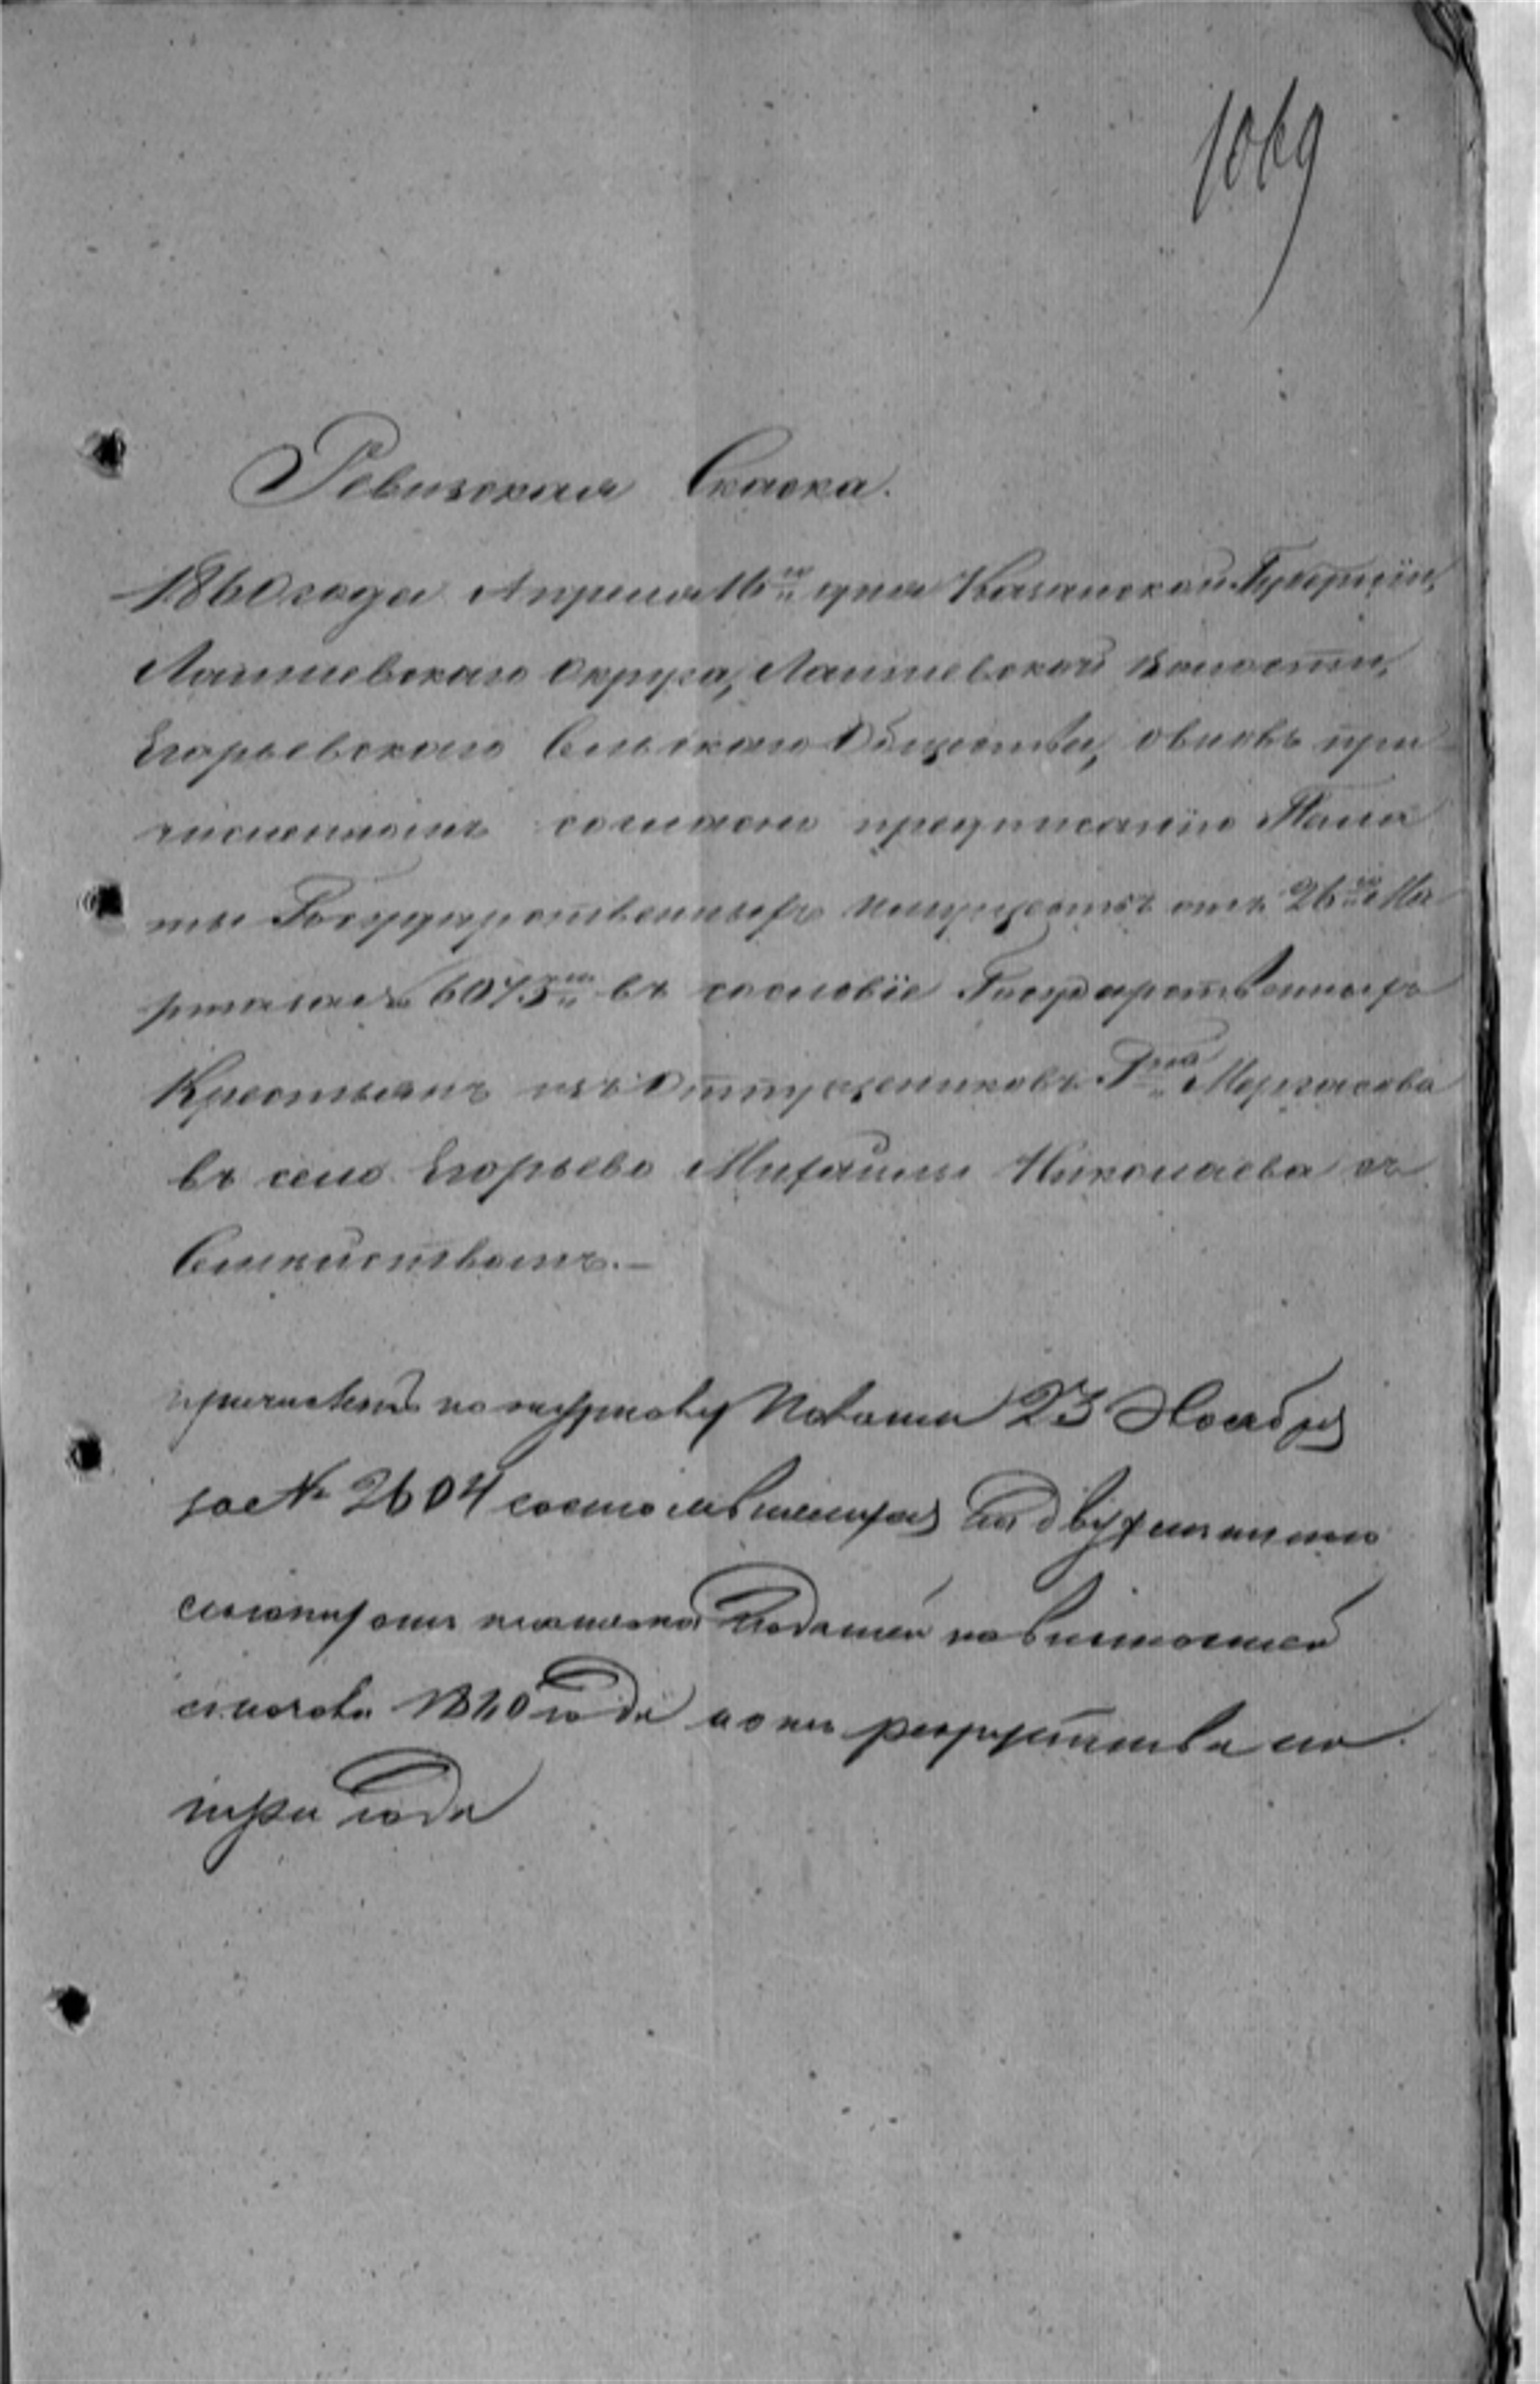 1069
Ревизская Скаска.
1860 года Апреля 16го дня Казанской Губерніи,
Лаишевскаго Округа, Лаишевской Волости,
Егорьевскаго Сельскаго Общества, овновь при
численномъ согласно предписанію Пала
ты Государственныхъ Имуществъ отъ 26го Ма
рта за № 6075мъ въ сословіе Государственныхъ
Крестьянъ изъ Отпущениковъ Гна Мергасова
въ село Егорьево Михайлы Николаева съ
Семействомъ.
причисленъ по журналу Палаты 23 Ноября
за № 2604 состоявшемуся двух
платежа Податей повинностей
сначала 1860 года а отъ рекрутства на
три года